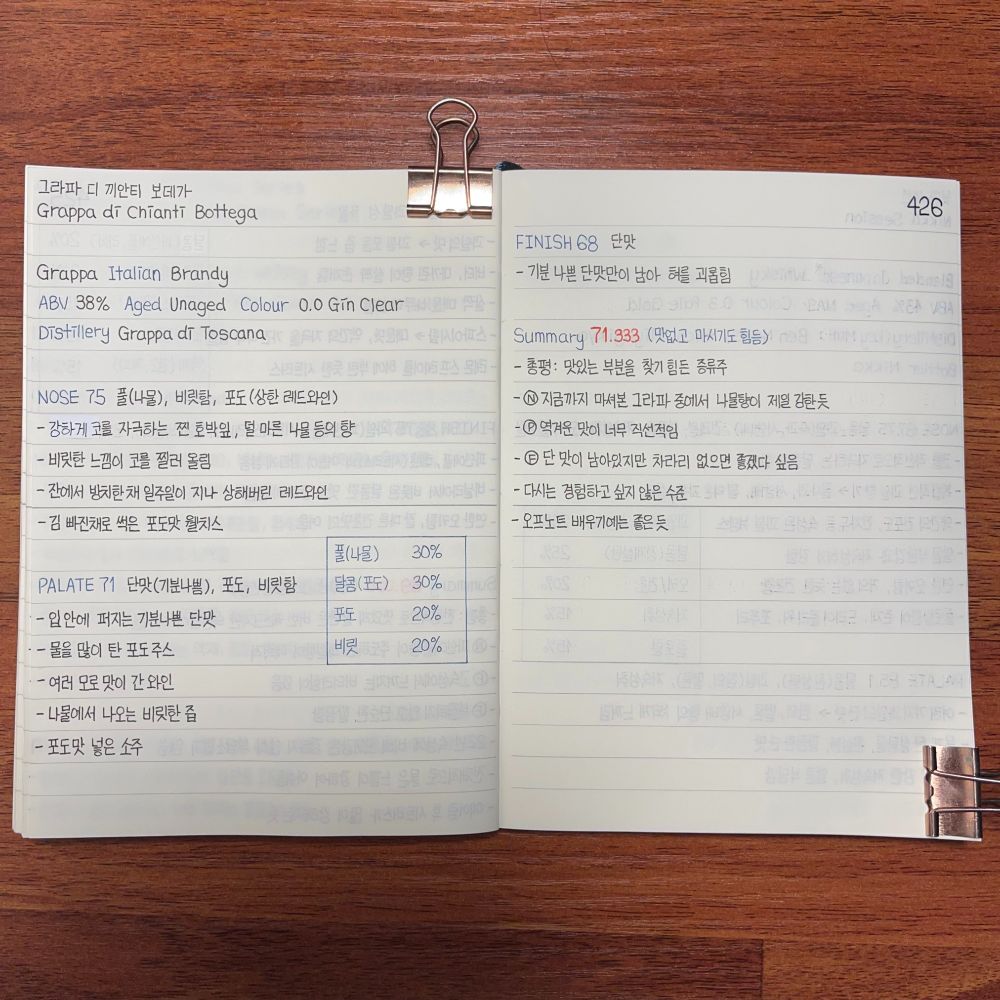 그라파 디 끼안티 보데가
Grappa di Chianti Bottega
Grappa Italian Brandy
ABV 38% Aged Unaged Colour 0.0 Gin Clear
Distillery Grappa di Toscana
NOSE 75 풀(나물), 비릿함, 포도(상한 레드와인)
- 강하게 코를 자극하는 찐 호박잎, 덜 마른 나물 등의 향
- 비릿한 느낌이 코를 찔러 올림
- 잔에서 방치한 채 일주일이 지나 상해버린 레드와인
- 김 빠진채로 썩은 포도맛 웰치스
풀(나물) 30%
달콤(포도) 30%
포도 20%
비릿 20%
PALATE 71 단맛(기분나쁨), 포도, 비릿함
- 입안에 퍼지는 기분나쁜 단맛
- 물을 많이 탄 포도주스
- 여러 모로 맛이 간 와인
- 나물에서 나오는 비릿한 즙
- 포도맛 넣은 소주
426
FINISH 68 단맛
- 기분 나쁜 단맛만이 남아 혀를 괴롭힘
Summary 71.933 (맛없고 마시기도 힘듬)
- 총평: 맛있는 부분을 찾기 힘든 증류주
- Ⓝ 지금까지 마셔본 그라파 중에서 나물향이 제일 강한듯
- Ⓟ 역겨운 맛이 너무 직선적임
- Ⓕ 단 맛이 남아있지만 차라리 없으면 좋겠다 싶음
- 다시는 경험하고 싶지 않은 수준
- 오프노트 배우기에는 좋은듯